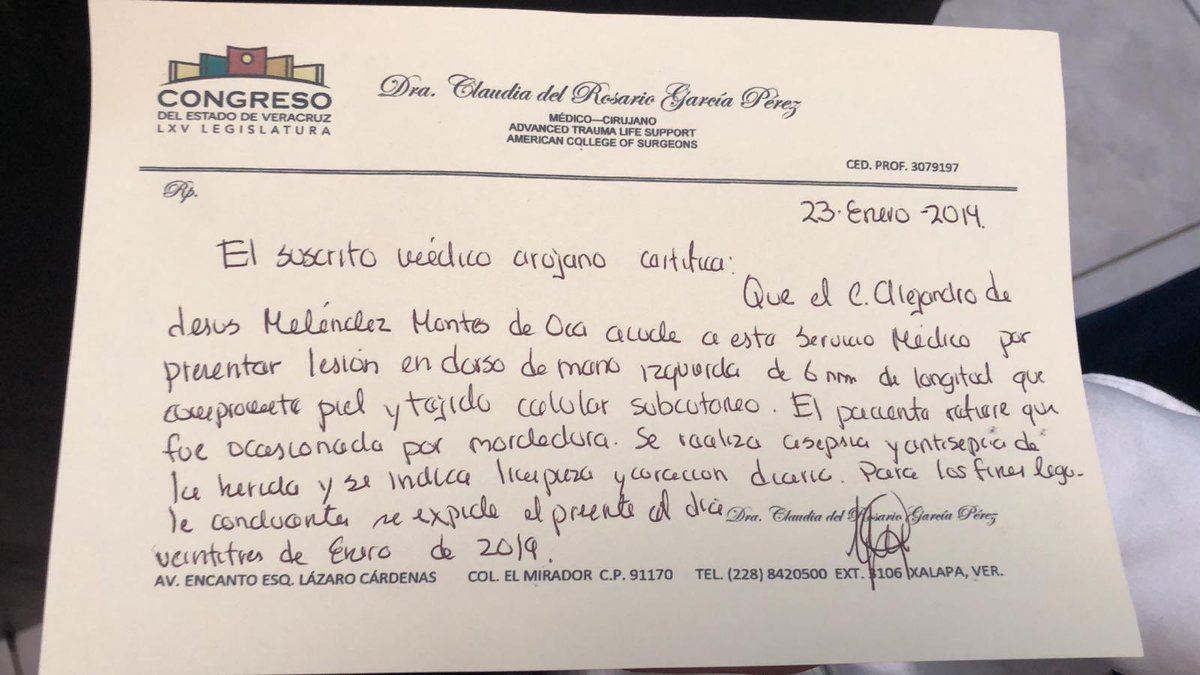 CONGRESO
DEL ESTADO DE VERACRUZ
LXV LEGISLATURA
Dra. Claudia del Rosario García Pérez
MÉDICO—CIRUJANO
ADVANCED TRAUMA LIFE SUPPORT
AMERICAN COLLEGE OF SURGEONS
CED. PROF. 3079197
Rp.
23-Enero-2019.
El suscrito médico cirujano certifica:
Que el C. Alejandro de
Jesus Meléndez Montes de Oca acude a este Servicio Médico por
presentar lesión en dorso de mano izquierda de 6 mm de longitud que
compromete piel y tejido celular subcutaneo. El paciente refiere que
fue ocasionada por mordedura. Se realiza asepsia y antisepcia de
la herida y se indica limpieza y curacion diaria. Para los fines lega-
le conducentes se expide el presente al dia
Dra. Claudia del Rosario García Pérez
veintitres de Enero de 2019.
AV. ENCANTO ESQ. LÁZARO CÁRDENAS COL. EL MIRADOR C.P. 91170 TEL. (228) 8420500 EXT. 3106 XALAPA, VER.